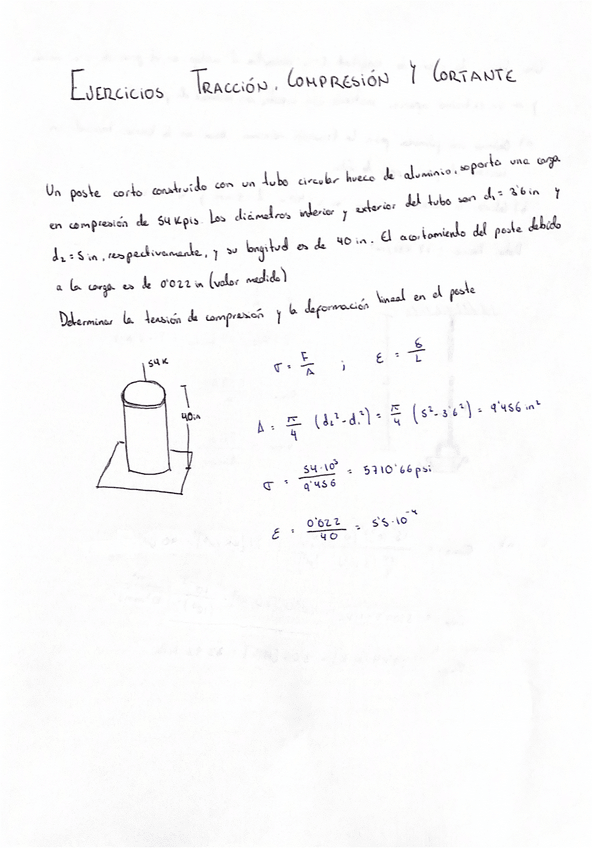 EJERCICIOS TRACCIÓN, COMPRESIÓN Y CORTANTE
Un poste corto construido con un tubo circular hueco de aluminio, soporta una carga
en compresión de 54 Kpis. Los diámetros interior y exterior del tubo son d₁ = 3'6 in y
d₂ = 5 in, respectivamente, y su longitud es de 40 in. El acortamiento del poste debido
a la carga es de 0'022 in (valor medido)
Determinar la tensión de compresión y la deformación lineal en el poste
54K
40in
σ = F/A ; ε = δ/L
A = π/4 (d₂² - d₁²) = π/4 (5² - 3'6²) = 9'456 in²
σ = 54·10³/9'456 = 5710'66 psi
ε = 0'022/40 = 5'5·10⁻⁴